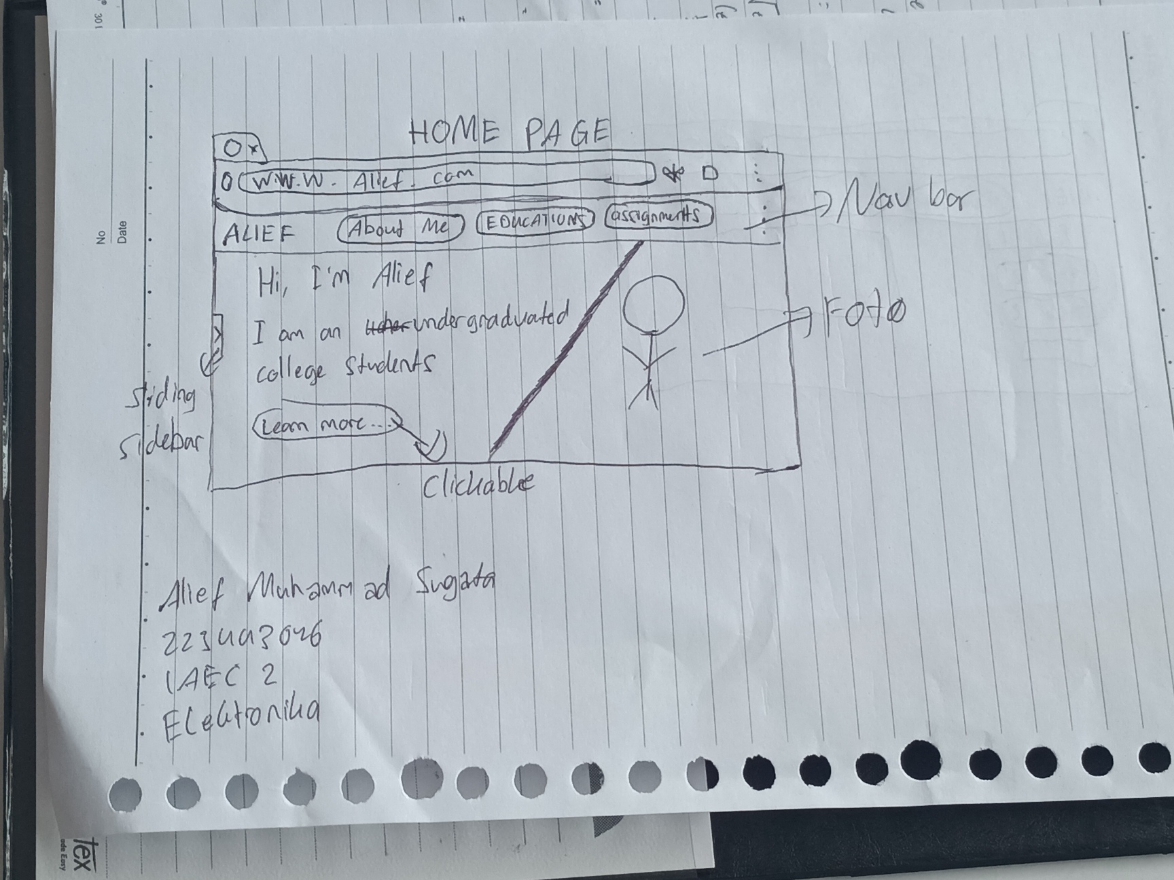 No
Date
HOME PAGE
www.Alief.com
ALIEF About Me EDUCATIONS assignments
Nav bar
Hi, I'm Alief
I am an undergraduated
college students
Foto
Sliding
sidebar
Learn more...
Clickable
Alief Muhammad Sugata
223443046
1AEC 2
Elektronika
tex